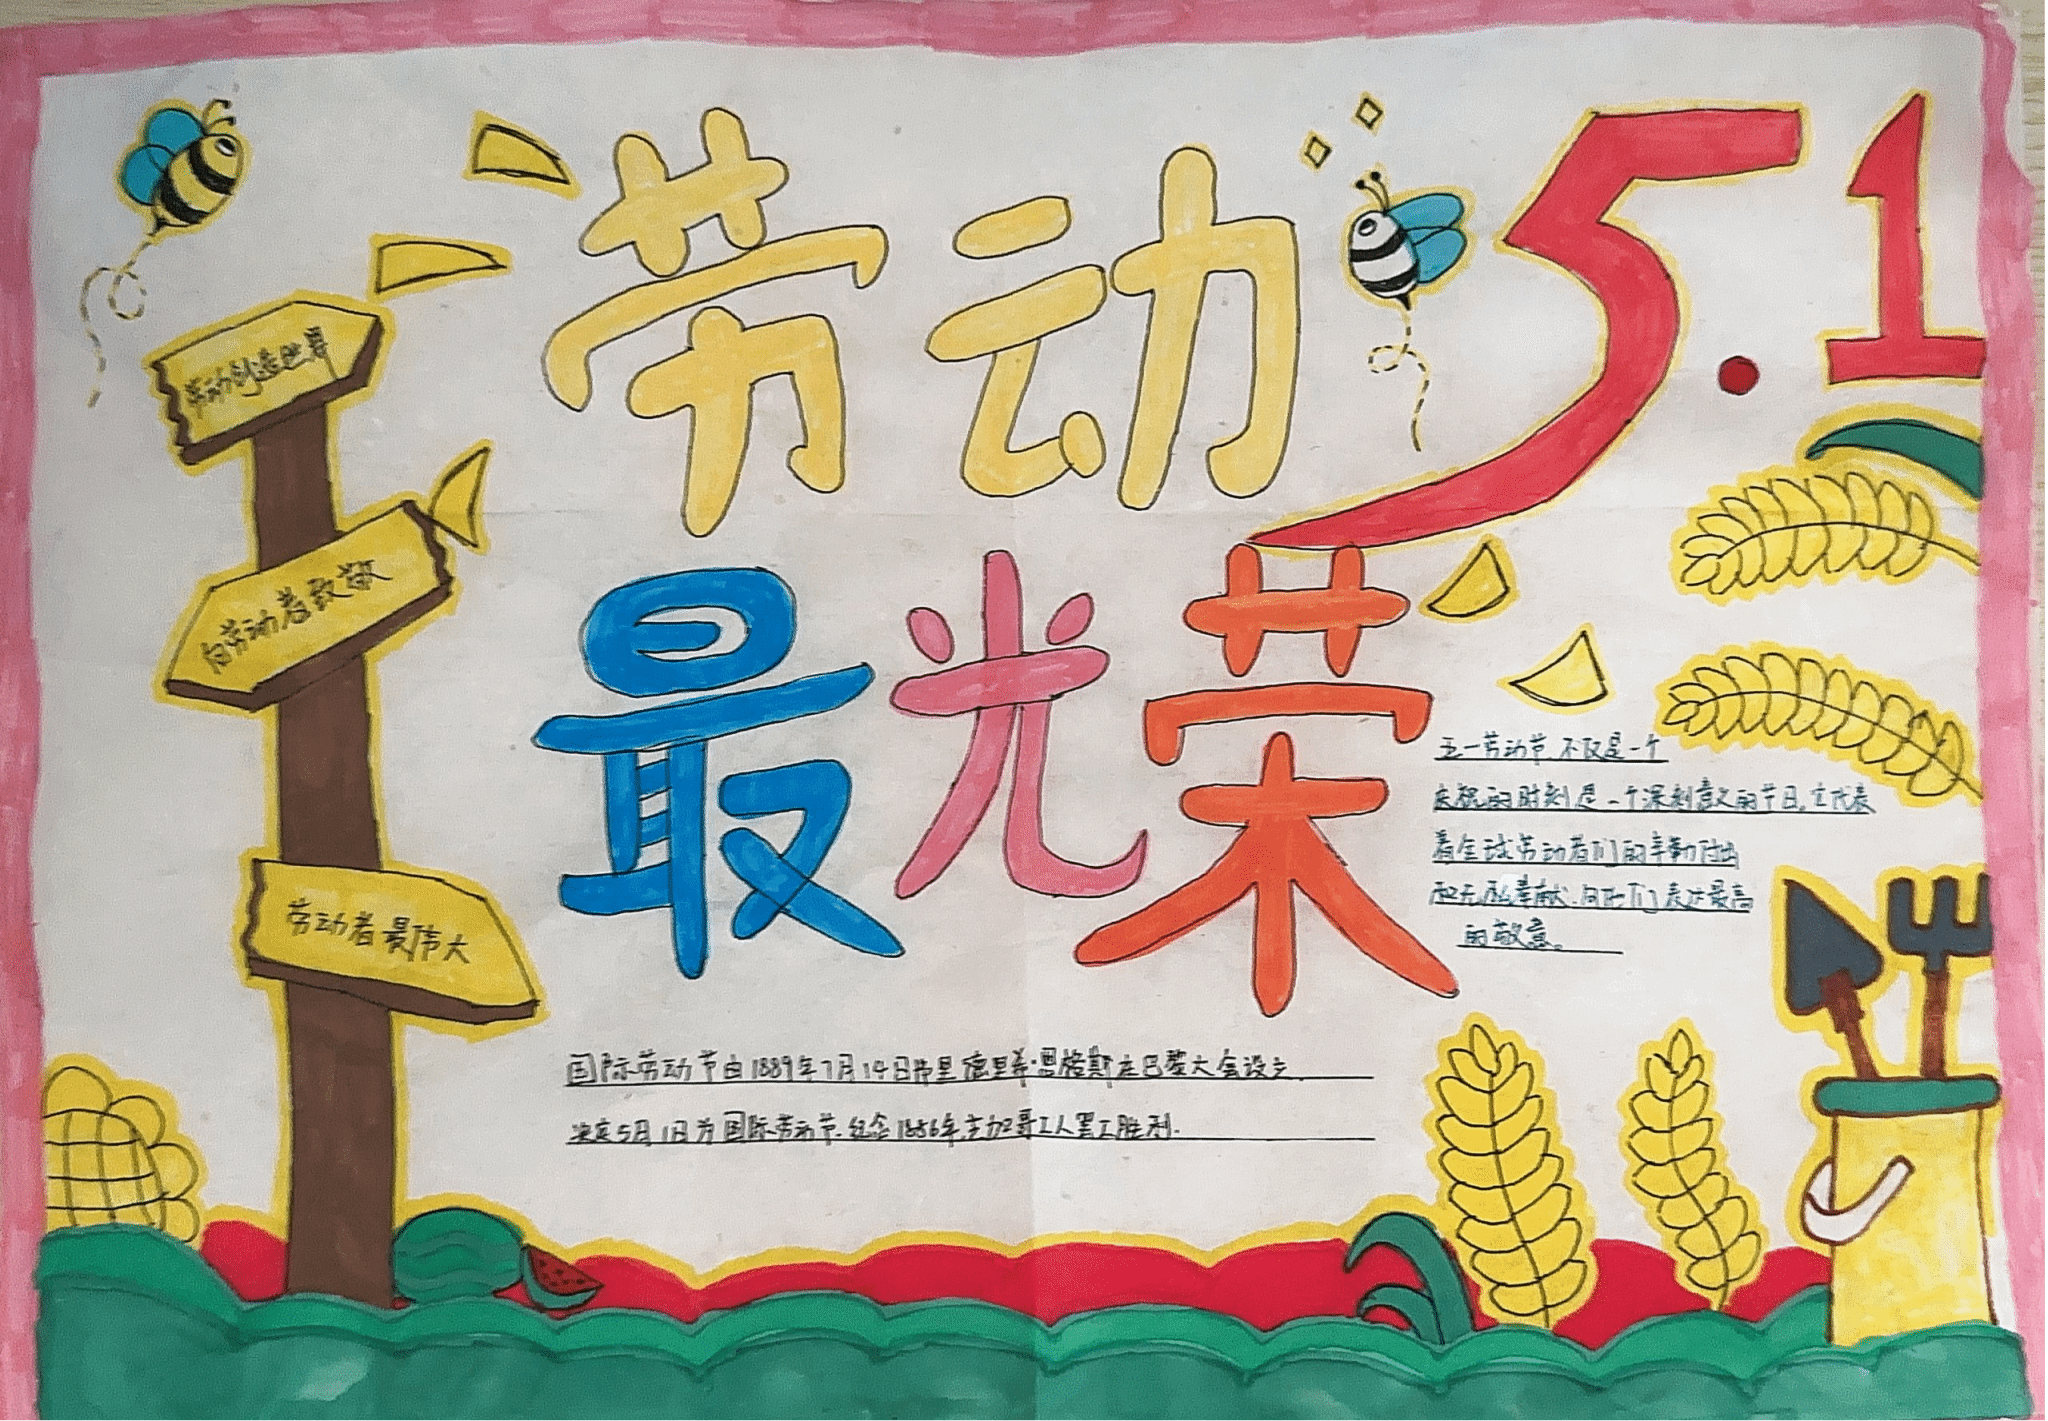 劳动
5.1
最光荣
劳动创造世界
向劳动者致敬
劳动者最伟大
五一劳动节,不仅是一个
庆祝的时刻是一个深刻意义的节日,它代表
着全球劳动者们的辛勤付出
和无私奉献,向他们表达最高
的敬意。
国际劳动节由1889年7月14日弗里德里希·恩格斯在巴黎大会设立.
决定5月1日为国际劳动节.纪念1886年芝加哥工人罢工胜利.